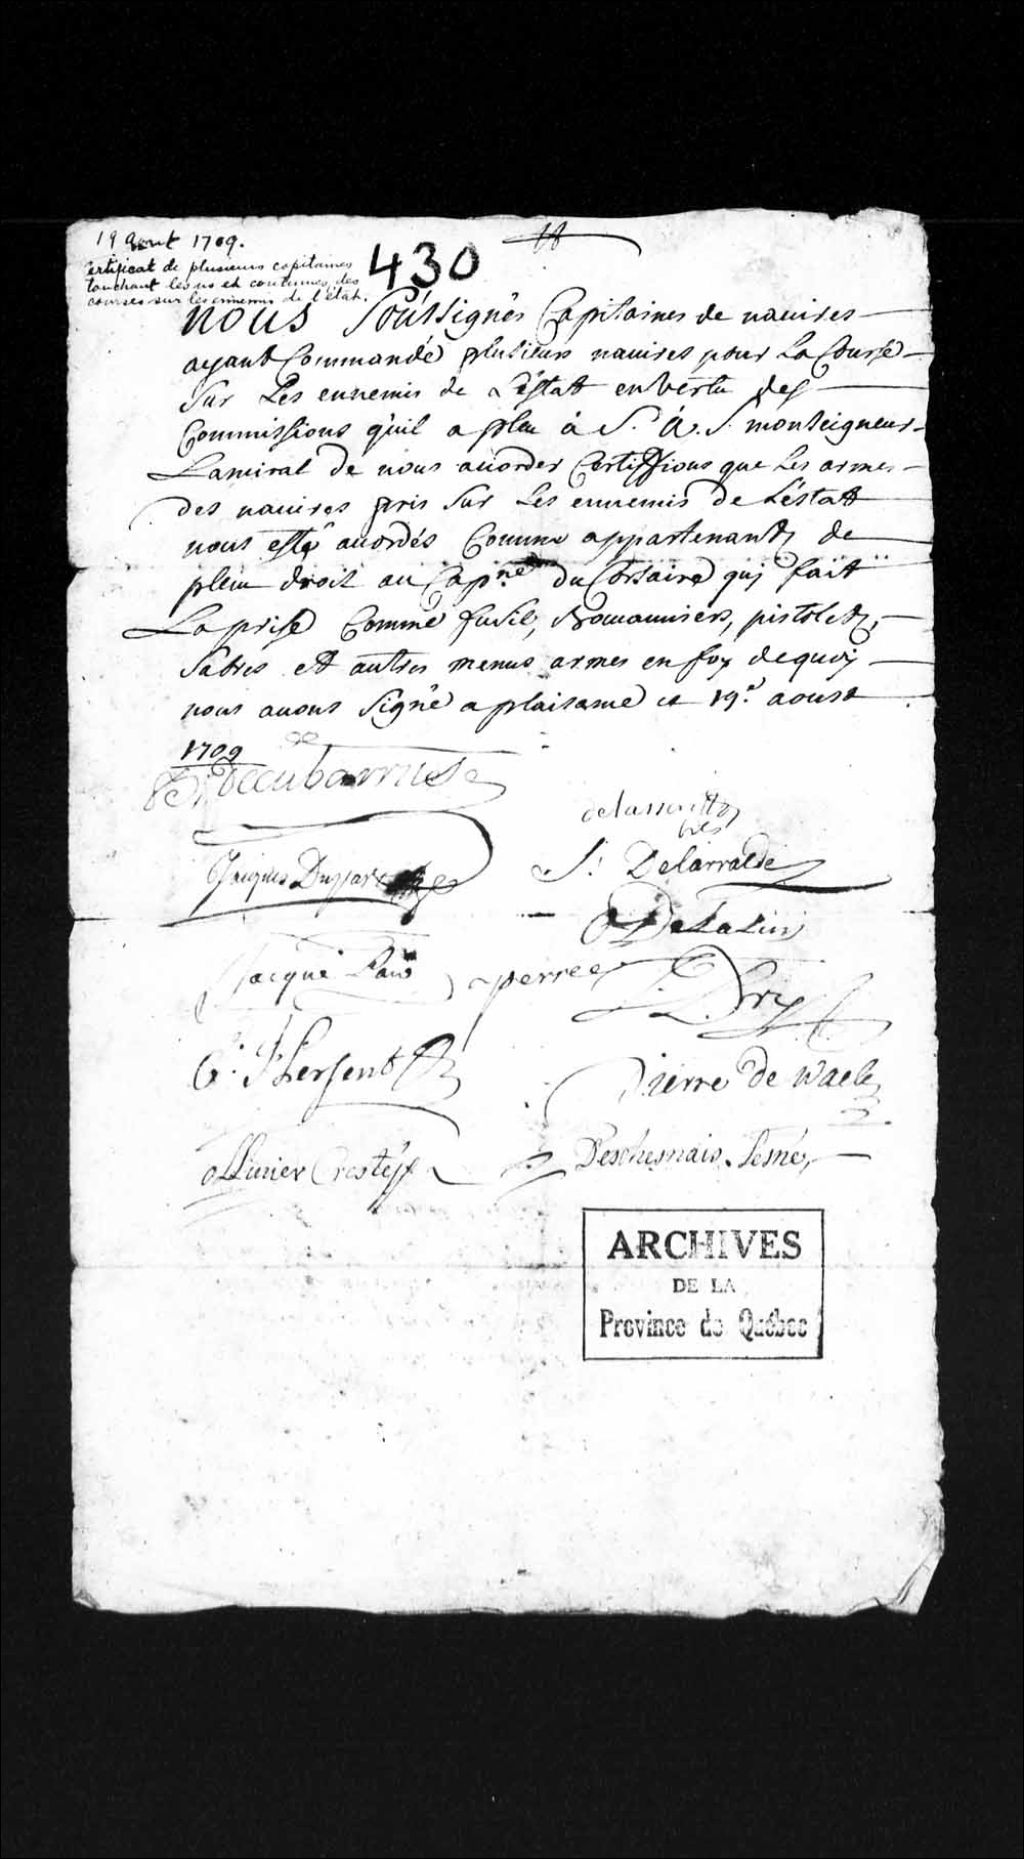 19 aout 1709.
18
Certificat de plusieurs capitaines
touchant les us et coutumes des
courses sur les ennemis de l'état.
430
Nous Soûssignés Capitaines de nauires
ayant Commandé plusieurs nauires pour La Course
Sur Les ennemis de L'éstat en Vertu des
Commissions quil a plu à S. A. S. monseigneur
Lamiral de nous acorder Certiffions que Les armes
des nauires pris Sur Les ennemis de Léstat
nous esté acordés Comme appartenants de
plein droit au Cap.ne du Corsaire quj fait
La prise Comme fusils, pistolets,
Sabres et autres menus armes en foy dequoy
nous auons Signé a plaisance ce 19.e aoust
1709
Jaques
S. Delarralde
Jacque
perree
Hersent
Pierre de Waele
ollivier
Deschesnais
ARCHIVES
DE LA
Province de Québec